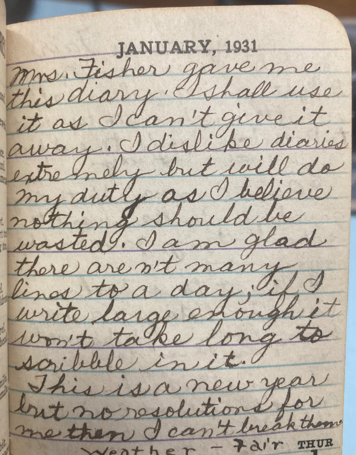 JANUARY, 1931
Mrs. Fisher gave me
this diary. I shall use
it as I can't give it
away. I dislike diaries
extremely but will do
my duty as I believe
nothing should be
wasted. I am glad
there aren't many
lines to a day; if I
write large enough it
won't take long to
scribble in it.
This is a new year
but no resolutions for
me then I can't break them
Weather - Fair THUR
1